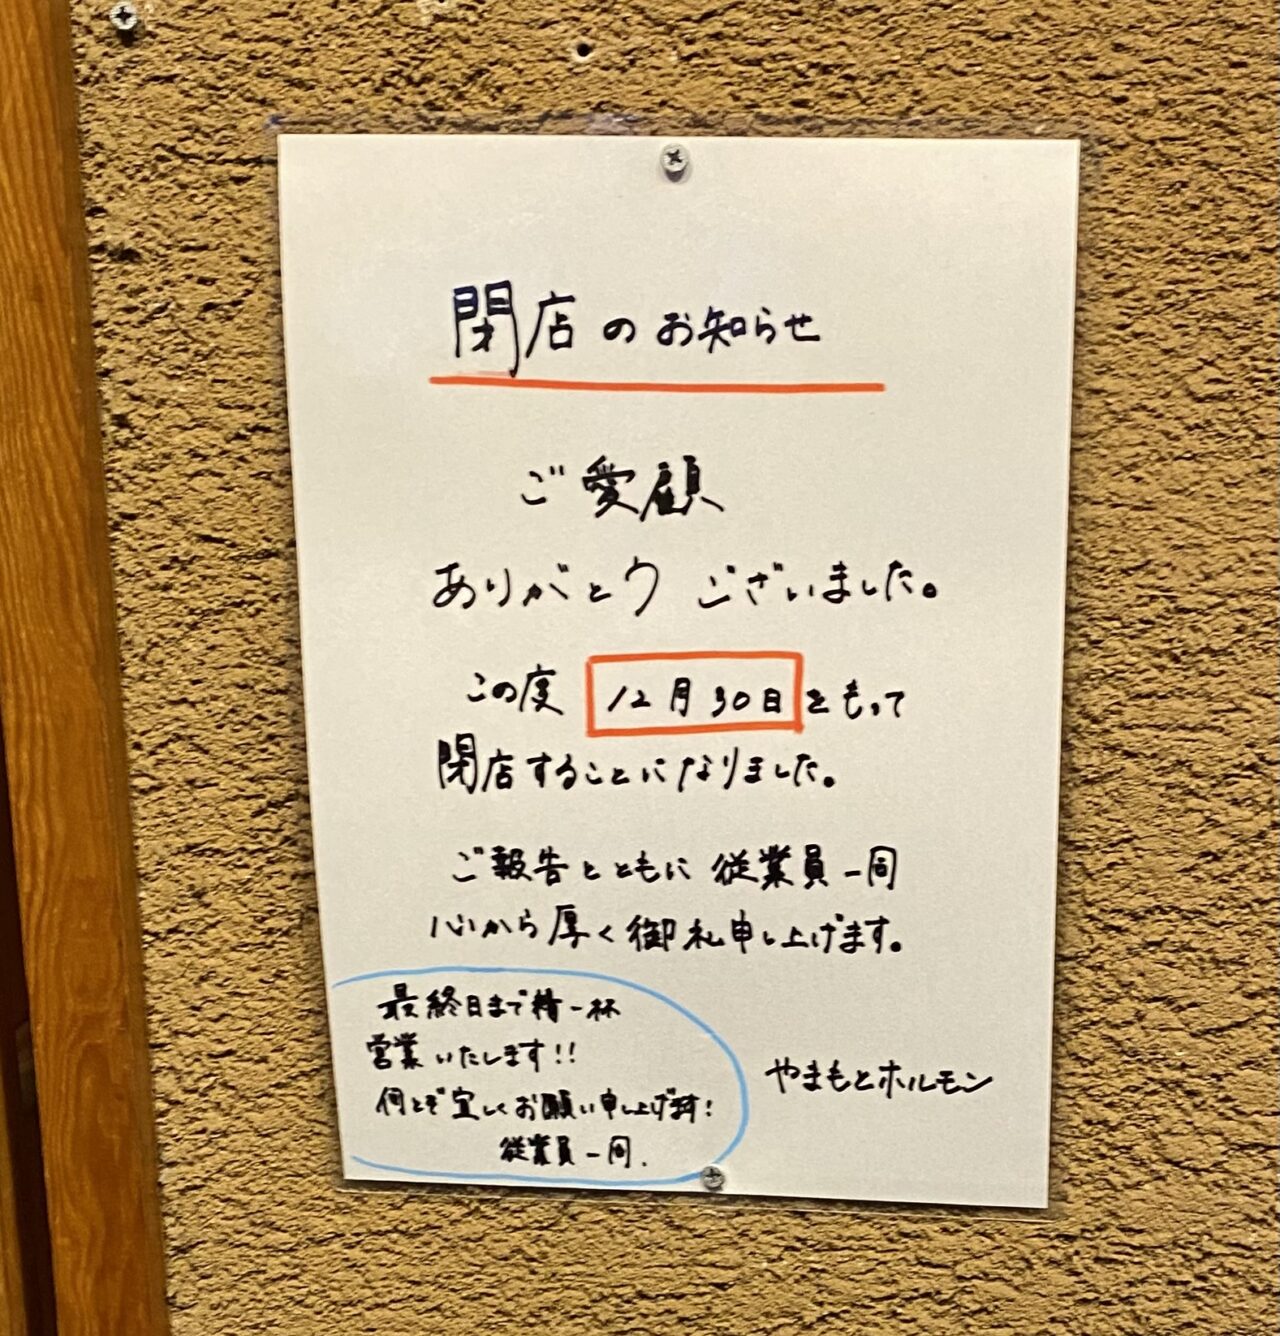 閉店のお知らせ
ご愛顧
ありがとウ ございました。
この度 12月30日をもって
閉店することになりました。
ご報告とともに 従業員一同
心から厚く御礼申し上げます。
最終日まで精一杯
営業いたします!!
何とぞ宜しくお願い申し上げます!
従業員一同.
やまもとホルモン